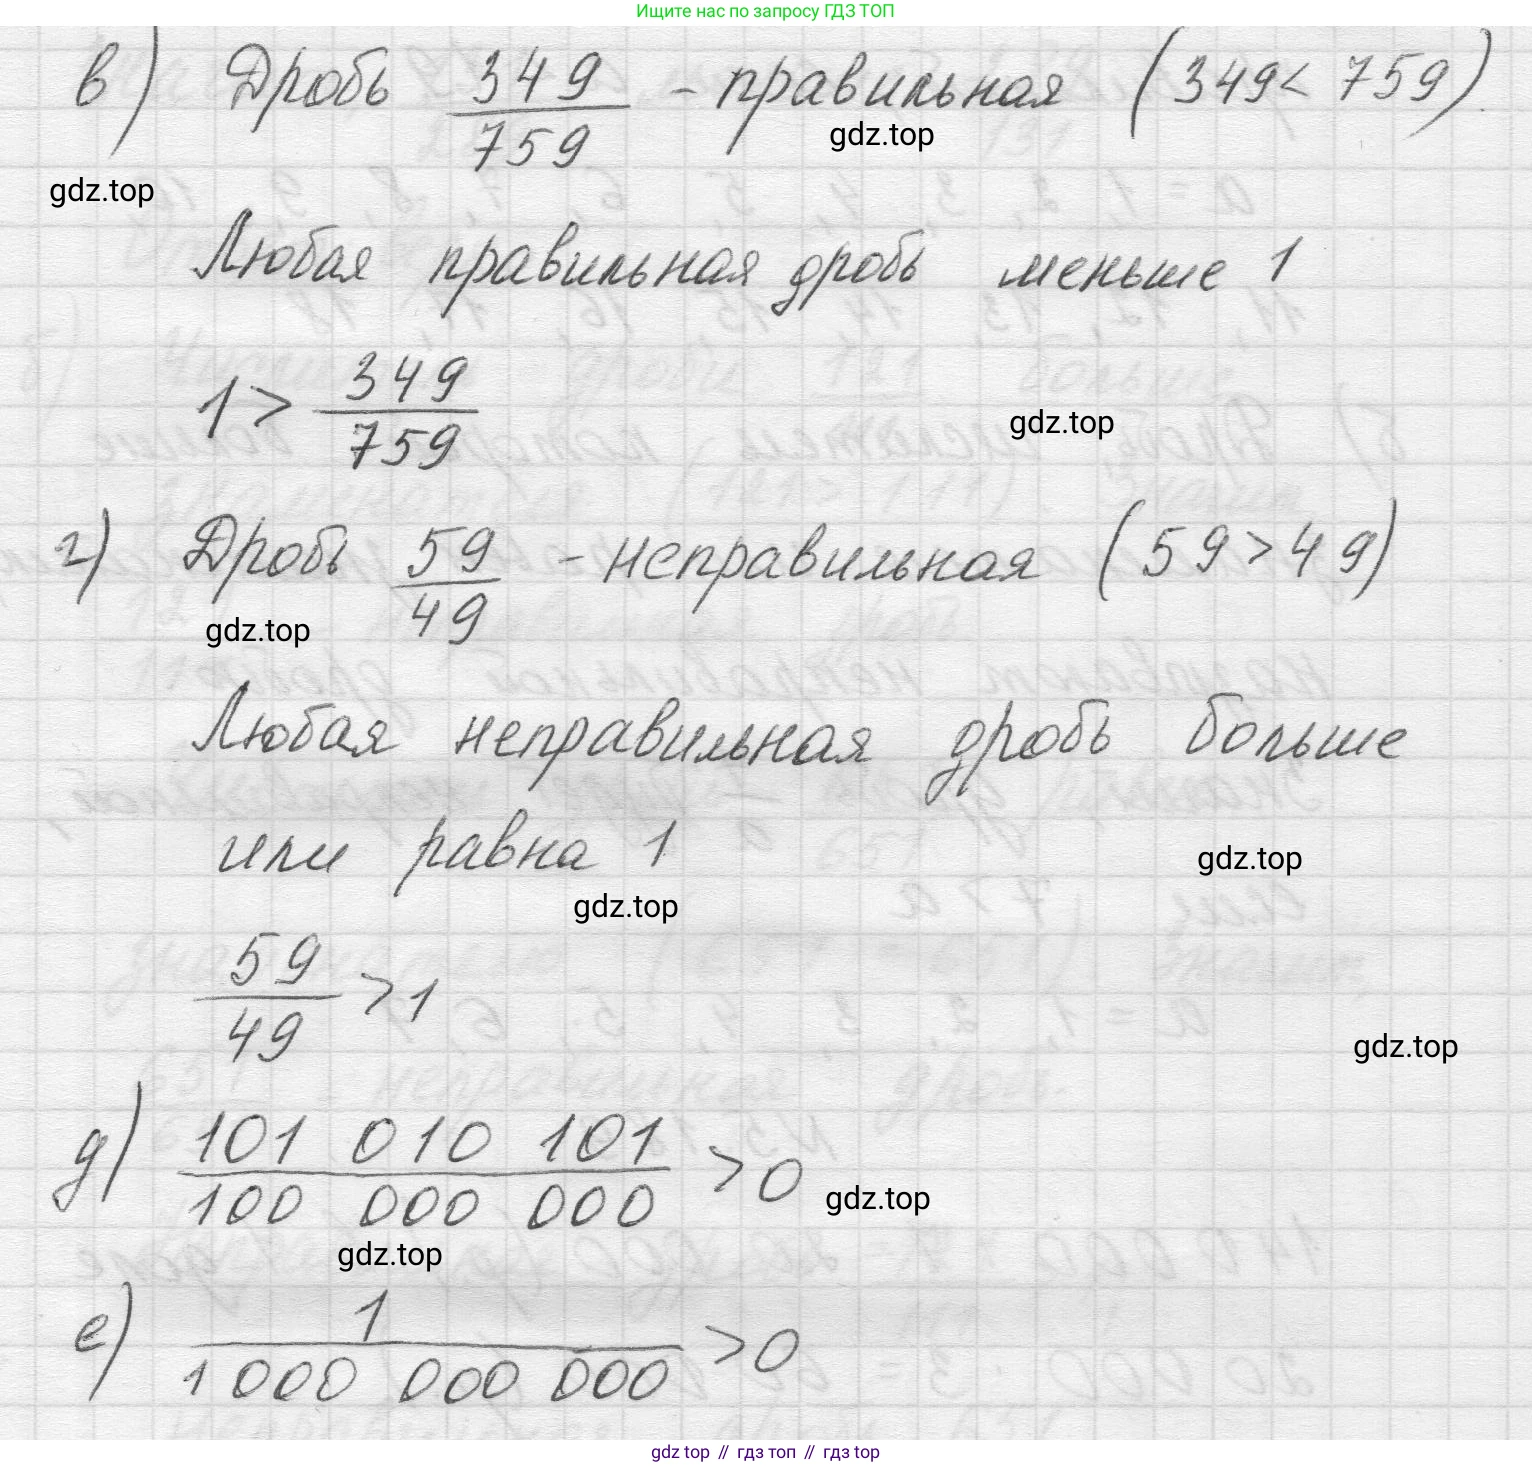 Ищите нас по запросу ГДЗ ТОП
в) Дробь 349/759 - правильная (349 < 759).
gdz.top
gdz.top
Любая правильная дробь меньше 1
1 > 349/759
gdz.top
г) Дробь 59/49 - неправильная (59 > 49)
gdz.top
Любая неправильная дробь больше
или равна 1
gdz.top
gdz.top
59/49 > 1
gdz.top
д) 101 010 101/100 000 000 > 0
gdz.top
gdz.top
е) 1/1 000 000 000 > 0
gdz.top // гдз топ // гдз.top